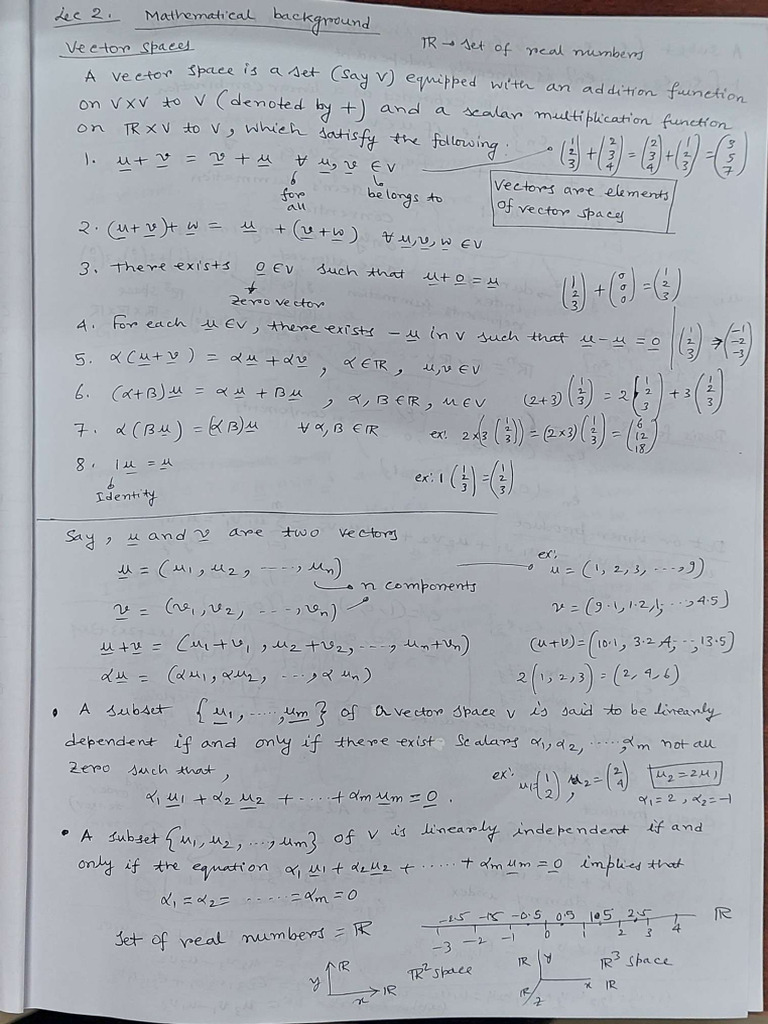 Lec 2. Mathematical background
Vector spaces
ℝ → set of real numbers
A vector space is a set (say V) equipped with an addition function
on V×V to V (denoted by +) and a scalar multiplication function
on ℝ×V to V, which satisfy the following:
1. u + v = v + u ∀ u, v ∈ V
(1 2 3) + (2 3 4) = (2 3 4) + (1 2 3) = (3 5 7)
for all
belongs to
Vectors are elements
of vector spaces
2. (u + v) + w = u + (v + w) ∀ u, v, w ∈ V
3. There exists 0 ∈ V such that u + 0 = u
(1 2 3) + (0 0 0) = (1 2 3)
zero vector
4. For each u ∈ V, there exists -u in V such that u - u = 0 | (1 2 3) → (-1 -2 -3)
5. α(u + v) = αu + αv , α ∈ ℝ, u, v ∈ V
6. (α+β)u = αu + βu , α, β ∈ ℝ, u ∈ V (2+3)(1 2 3) = 2(1 2 3) + 3(1 2 3)
7. α(βu) = (αβ)u ∀ α, β ∈ ℝ ex: 2×(3(1 2 3)) = (2×3)(1 2 3) = (6 12 18)
8. 1u = u ex: 1(1 2 3) = (1 2 3)
Identity
Say, u and v are two vectors
u = (u1, u2, ....., un)
ex: u = (1, 2, 3, ..., 9)
n components
v = (v1, v2, ...., vn)
v = (9.1, 1.2, 1, ..., 4.5)
u + v = (u1+v1, u2+v2, ...., un+vn) (u+v) = (10.1, 3.2, 4, ..., 13.5)
αu = (αu1, αu2, ...., αun) 2(1, 2, 3) = (2, 4, 6)
• A subset {u1, ....., um} of a vector space V is said to be linearly
dependent if and only if there exist scalars α1, α2, ....., αm not all
zero such that,
ex: u1 = (1 2), u2 = (2 4) u2 = 2u1
α1 u1 + α2 u2 + ..... + αm um = 0.
α1 = 2, α2 = -1
• A subset {u1, u2, ..., um} of V is linearly independent if and
only if the equation α1 u1 + α2 u2 + ..... + αm um = 0 implies that
α1 = α2 = ..... = αm = 0
Set of real numbers = ℝ
-2.5 -1.5 -0.5 0.5 1.5 2.5 ℝ
-3 -2 -1 0 1 2 3 4
y ℝ x ℝ ℝ² space
ℝ y x ℝ ℝ z ℝ³ space